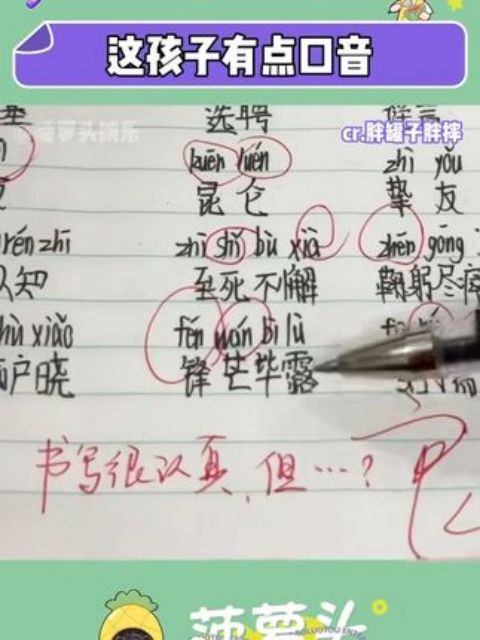 这孩子有点口音
@菠萝头娱乐
选聘
cr.胖罐子胖梓
kuēn luén
zhì yǒu
昆仑
挚友
rén zhī
zhì shǐ bù xià
zhēn gōng
认知
至死不懈
鞠躬尽瘁
hù xiǎo
fēn wán bì lù
户晓
锋芒毕露
书写很认真,但…?
菠萝头